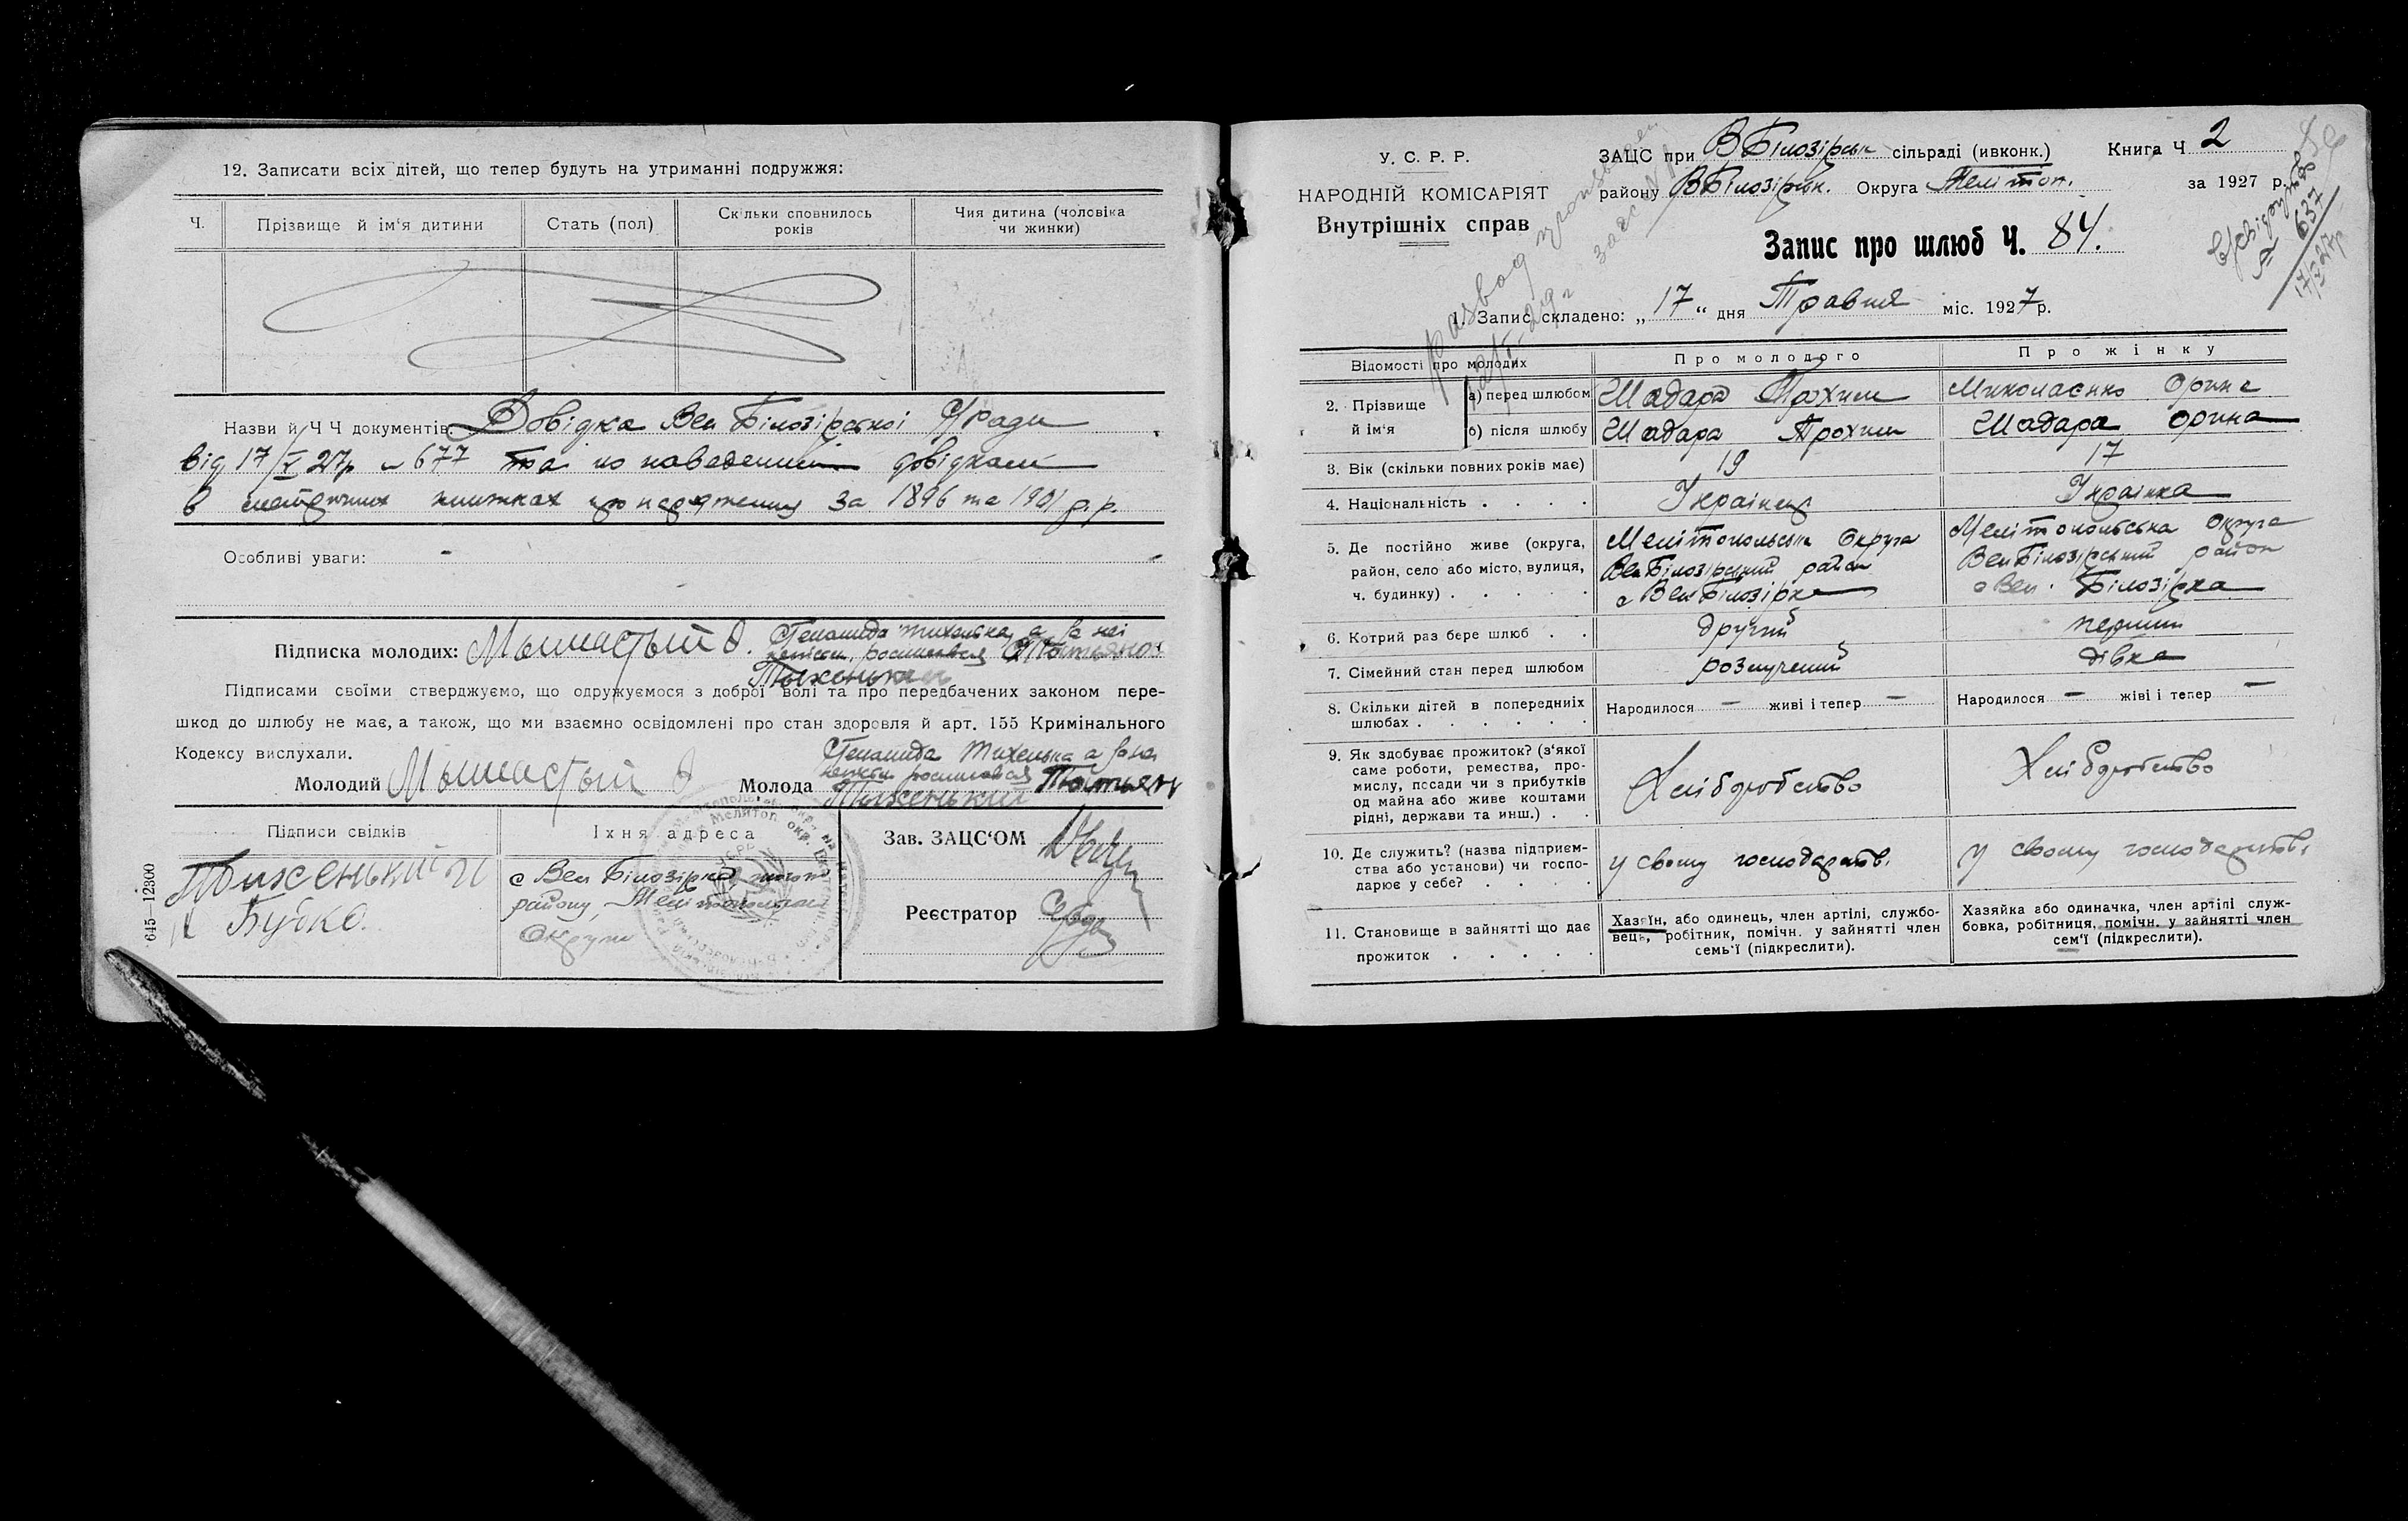 12. Записати всіх дітей, що тепер будуть на утриманні подружжя:
Ч.
Прізвище й ім'я дитини
Стать (пол)
Скільки сповнилось
років
Чия дитина (чоловіка
чи жинки)
Назви й Ч Ч документів: Довідка Вел Білозірської С/Ради
від 17/V 27р № 677 та по наведенним довідкам
в метричних книжках про народження за 1896 та 1901 р.р.
Особливі уваги: - -
Підписка молодих:
Степанида Тихенька, а за неї
Підписами своїми стверджуємо, що одружуємося з доброї волі та про передбачених законом пере-
шкод до шлюбу не має, а також, що ми взаємно освідомлені про стан здоровля й арт. 155 Кримінального
Кодексу вислухали.
Степанида Тихенька а за
Молодий
Молода
Підписи свідків
Їхня адреса
Тихенький
Бубко.
с Вел Білозірка, того ж
району, Мелітопольської
Округи
Зав. ЗАЦС'ОМ
Реєстратор
645—12300
У. С. Р. Р.
НАРОДНІЙ КОМІСАРІЯТ
Внутрішніх справ
ЗАЦС при ВБілозірськ сільраді (ивконк.)
Книга Ч 2
району ВБілозірськ. Округа Мелітоп.
за 1927 р.
Запис про шлюб Ч. 84.
637
развод
1. Запис складено: „ 17 “ дня Травня міс. 1927 р.
Відомості про молодих
Про молодого
Про жінку
2. Прізвище
й ім'я
а) перед шлюбом
Шадара Трохим
Миколаєнко Орина
б) після шлюбу
Шадара Трохим
Шадара Орина
3. Вік (скільки повних років має)
19
17
4. Національність . . . .
Українець
Українка
5. Де постійно живе (округа,
район, село або місто, вулиця,
ч. будинку) . . . . .
Мелітопольська Округа
ВелБілозірський район
с ВелБілозірка
Мелітопольська Округа
ВелБілозірський район
с Вел. Білозірка
6. Котрий раз бере шлюб . .
другий
перший
7. Сімейний стан перед шлюбом
розлучений
дівка
8. Скільки дітей в попередниіх
шлюбах . . . . . .
Народилося — живі і тепер —
Народилося — жіві і тепер —
9. Як здобуває прожиток? (з'якої
саме роботи, ремества, про-
мислу, посади чи з прибутків
од майна або живе коштами
рідні, держави та инш.) . .
Хліборобство
Хліборобство
10. Де служить? (назва підприєм-
ства або установи) чи госпо-
дарює у себе? . . . .
у свому господарстві
у свому господарстві
11. Становище в зайнятті що дає
прожиток . . . . .
Хазяїн, або одинець, член артілі, службо-
вець, робітник, помічн. у зайнятті член
семь'ї (підкреслити).
Хазяйка або одиначка, член артілі служ-
бовка, робітниця, помічн. у зайнятті член
сем'ї (підкреслити).